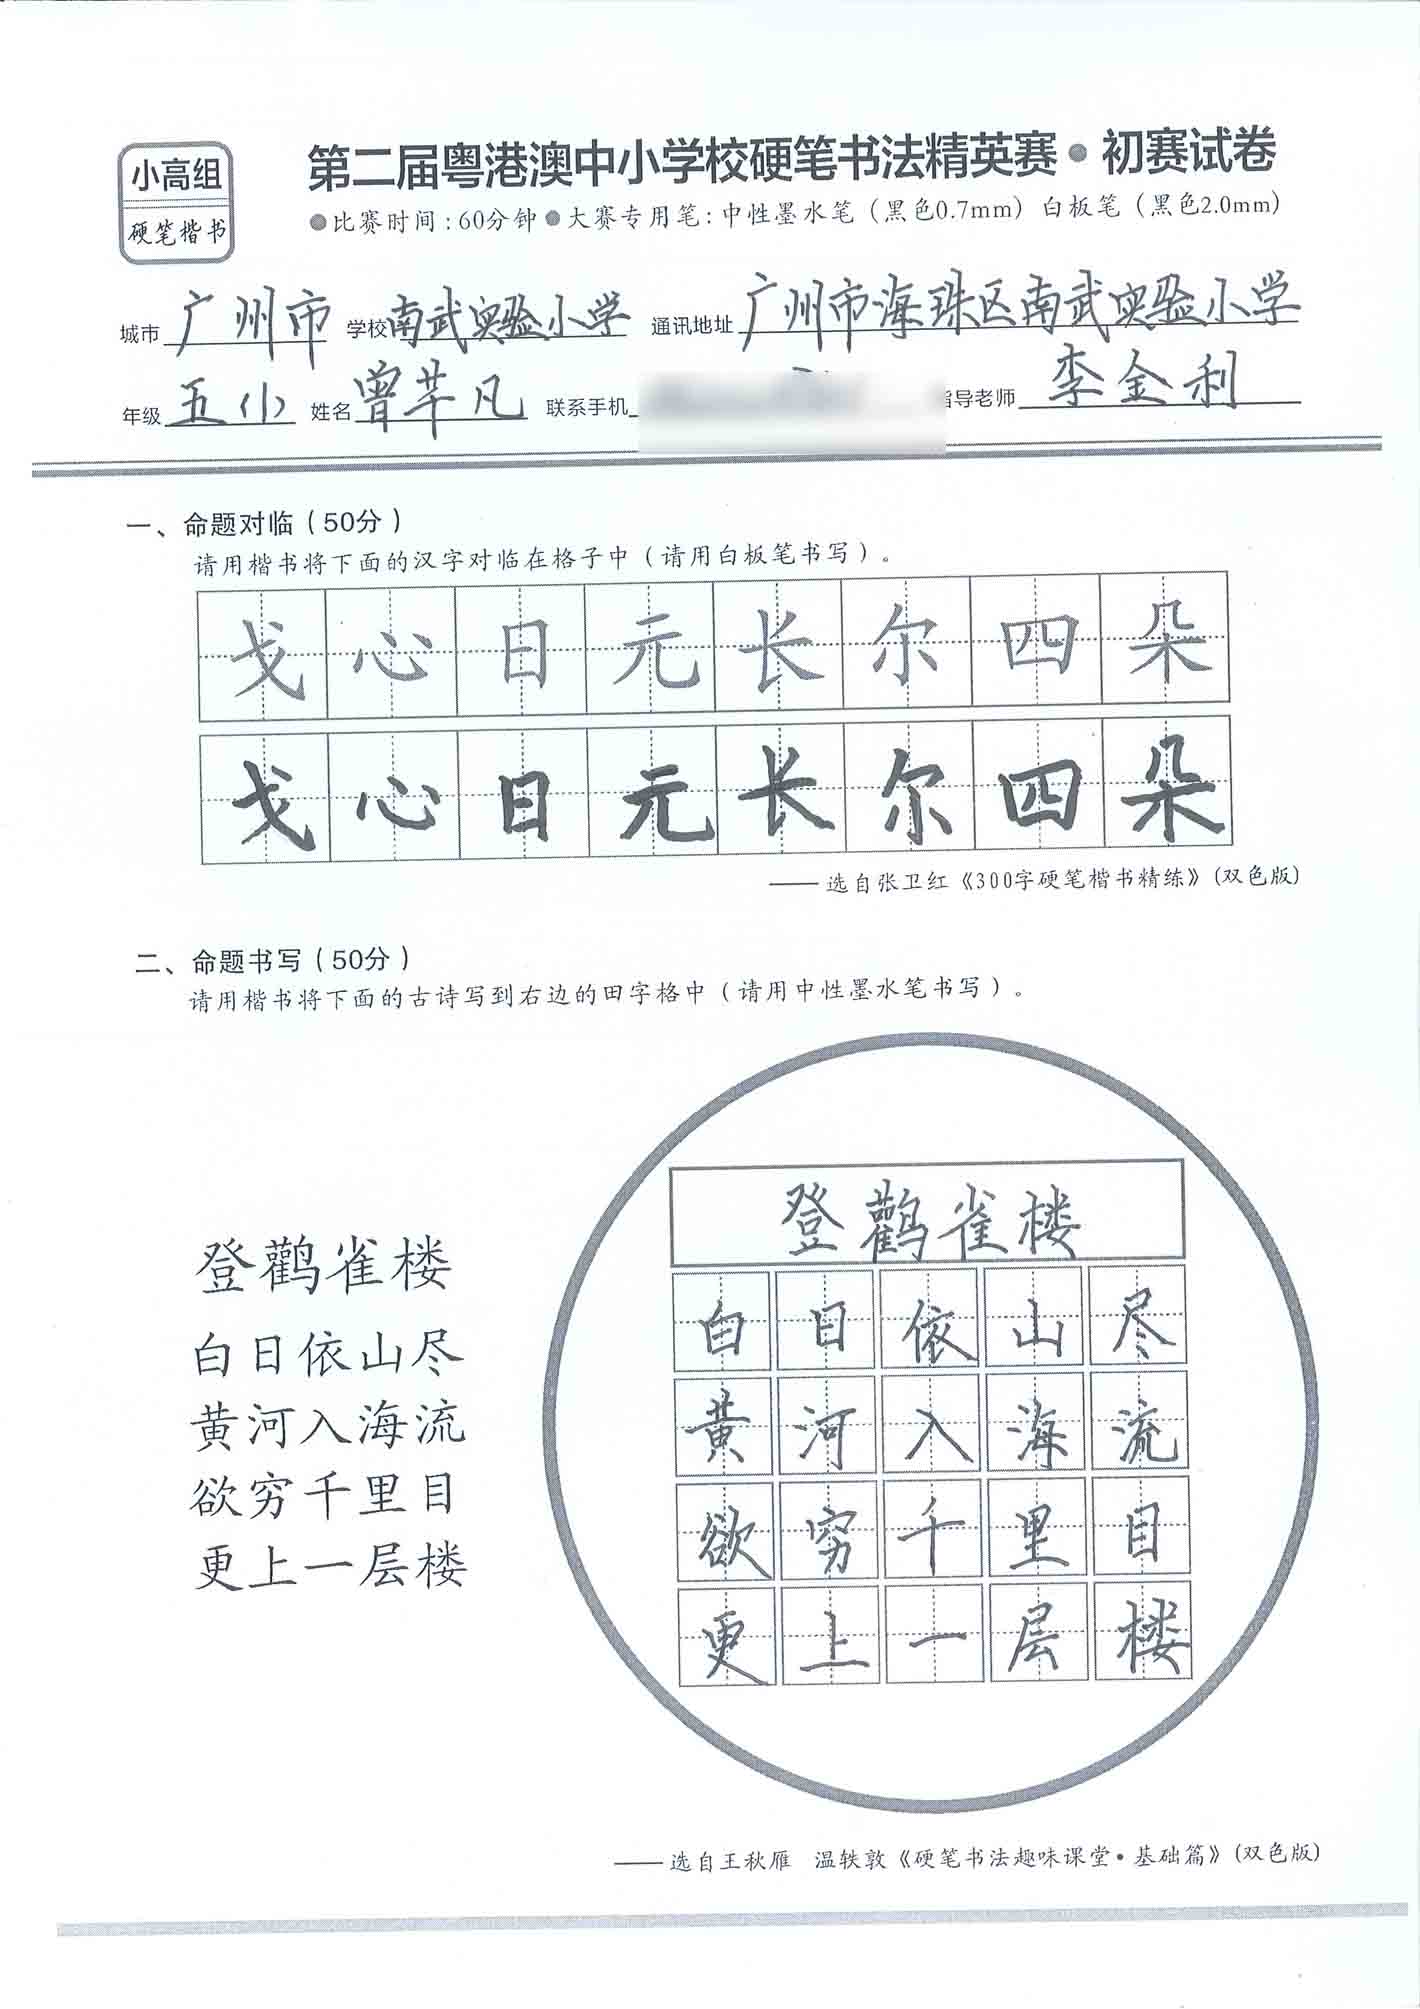 小高组
硬笔楷书
第二届粤港澳中小学校硬笔书法精英赛·初赛试卷
●比赛时间:60分钟●大赛专用笔:中性墨水笔（黑色0.7mm）白板笔（黑色2.0mm）
城市 广州市 学校 南武实验小学 通讯地址 广州市海珠区南武实验小学
年级 五（1） 姓名 曾芊凡 联系手机 指导老师 李金利
一、命题对临（50分）
请用楷书将下面的汉字对临在格子中（请用白板笔书写）。
戈心日元长尔四朵
戈心日元长尔四朵
——选自张卫红《300字硬笔楷书精练》(双色版)
二、命题书写（50分）
请用楷书将下面的古诗写到右边的田字格中（请用中性墨水笔书写）。
登鹳雀楼
白日依山尽
黄河入海流
欲穷千里目
更上一层楼
登鹳雀楼
白日依山尽
黄河入海流
欲穷千里目
更上一层楼
——选自王秋雁 温轶敦《硬笔书法趣味课堂·基础篇》(双色版)